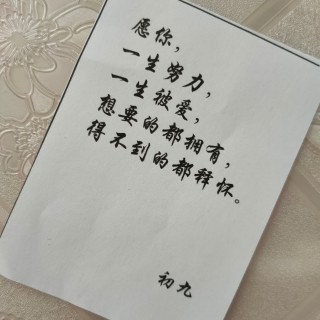 愿你，
一生努力，
一生被爱，
想要的都拥有，
得不到的都释怀。
初九